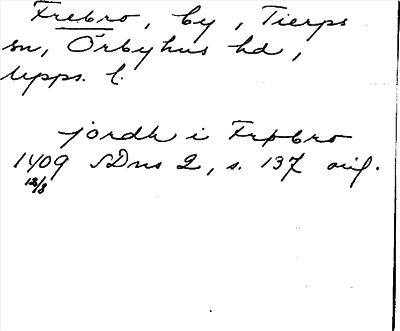 Frebro, by, Tierps
sn, Örbyhus hd,
Upps. l.
jordh i Frøbro
1409 SDns 2, s. 137 orig.
12/3